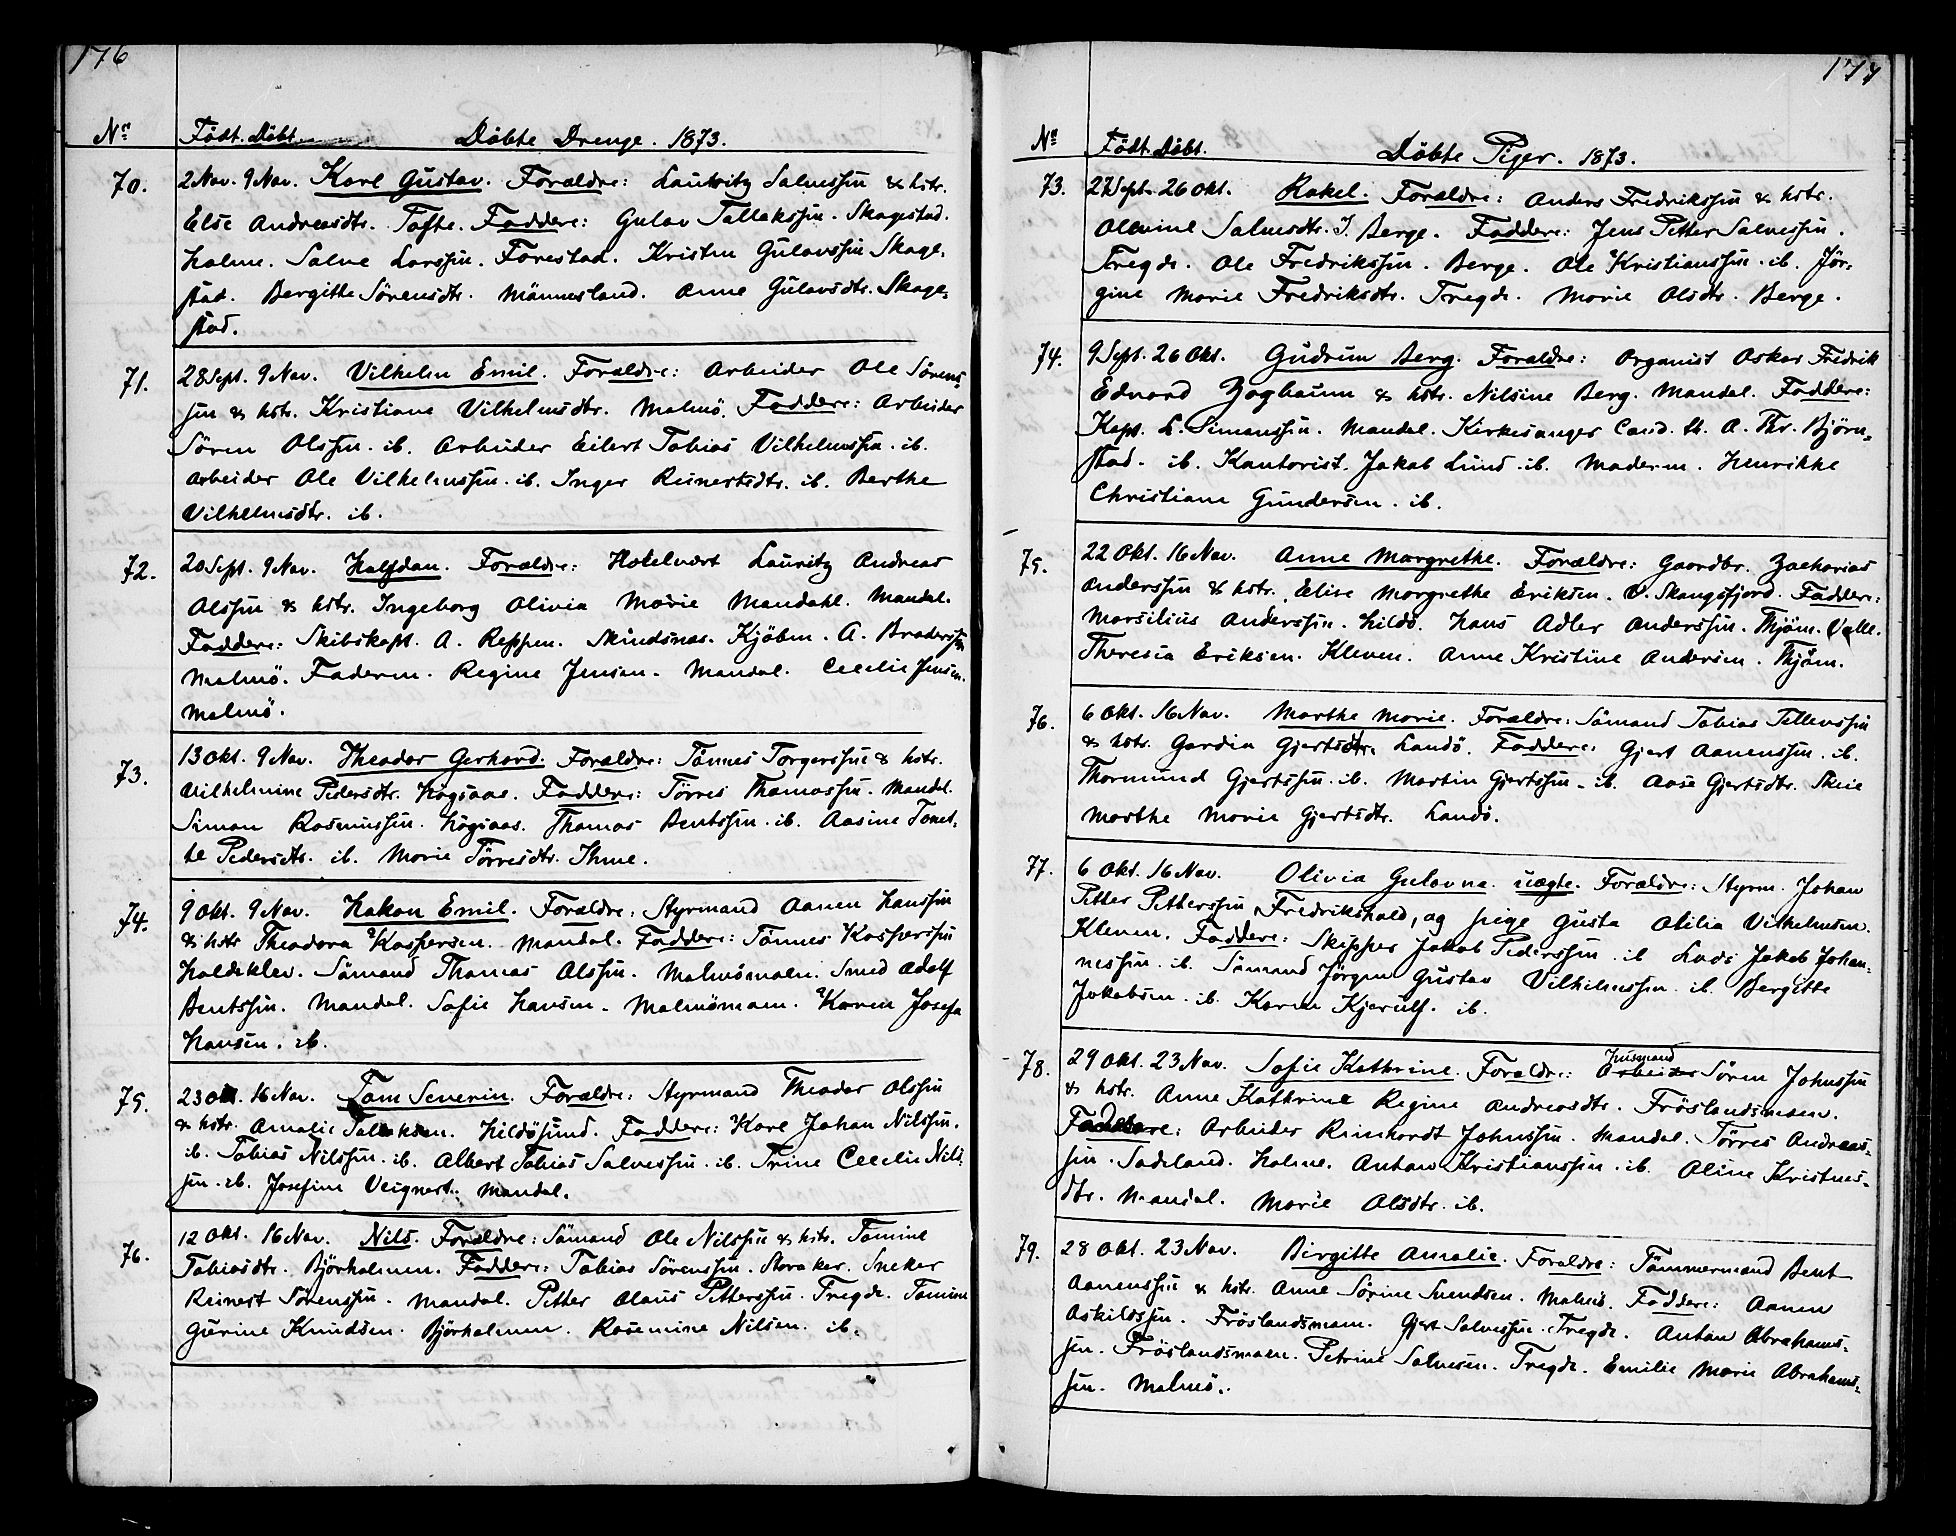 176
Nº Födt. Döbt. Döbte Drenge. 1873.
70. 2 Nov. 9 Nov. Karl Gustav. Forældre: Lauritz Salvessen & hstr.
Else Andreasdtr. Tofte. Faddere: Gulav Tallakssen. Skagestad.
Holme. Salve Larssen. Forestad. Kristen Gulavssen Skage-
stad. Bergitte Sörensdtr. Mannesland. Anne Gulavsdtr. Skage-
stad.
71. 28 Sept. 9 Nov. Vilhelm Emil. Forældre: Arbeider Ole Sörens-
sen & hstr. Kristiane Vilhelmsdtr. Malmö. Faddere: Arbeider
Sören Olssen. ib. Arbeider Eilert Tobias Vilhelmssen. ib.
Arbeider Ole Vilhelmssen. ib. Inger Reinertsdtr. ib. Berthe
Vilhelmsdtr. ib.
72. 20 Sept. 9 Nov. Halfdan. Forældre: Hotelvert Lauritz Andreas
Olssen & hstr. Ingeborg Olivia Marie Mandahl. Mandal.
Faddere: Skibskapt. A. Reppen. Kjöbm. A. Braderssen
Malmö. Faderen. Regine Jensen. Mandal. Cecilie Jensen.
Malmö.
73. 13 Okt. 9 Nov. Theodor Gerhard. Forældre: Tönnes Torgerssen & hstr.
Vilhelmine Pedersdtr. Högsaas. Faddere: Törres Thomassen. Mandal.
Simon Rasmussen. Högsaas. Thomas Bentssen. ib. Aasine Tomet-
te Pedersdtr. ib. Marie Törresdtr. Ihme.
74. 9 Okt. 9 Nov. Hakon Emil. Forældre: Styrmand Aanen Hanssen
& hstr Theodora Kaspersen. Mandal. Faddere: Tönnes Kasperssen
Holdeklev. Sömand Thomas Olssen. Malmömoen. Smed Adolf
Bentssen. Mandal. Sofie Hansen. Malmömoen. Karen Josefa
Hansen. ib.
75. 23 Okt. 16 Nov. Tom Severin. Forældre: Styrmand Theodor Olssen
& hstr. Amalie Tallaksen. Hildösund. Faddere: Karl Johan Nilssen.
ib. Tobias Nilssen. ib. Albert Tobias Salvessen. ib. Trine Cecelie Nils-
sen. ib. Josefine Veignert. Mandal.
76. 12 Okt. 16 Nov. Nils. Forældre: Sömand Ole Nilssen & hstr. Tomine
Tobiasdtr. Björholmen. Faddere: Tobias Sörenssen. Storaker. Sneker
Reinert Sörenssen. Mandal. Petter Olaus Petterssen. Tregde. Tomine
Gurine Knudsen. Björholmen. Rosemine Nilsen. ib.
177
Nº Födt. Döbt. Döbte Piger. 1873.
73. 27 Sept. 26 Okt. Rakel. Forældre: Anders Fredrikssen & hstr.
Olevine Salvesdtr. I. Berge. Faddere: Jens Petter Salvessen.
Tregde. Ole Fredrikssen. Berge. Ole Kristianssen. ib. Jör-
gine Marie Fredriksdtr. Tregde. Marie Olsdtr. Berge.
74. 9 Sept. 26 Okt. Gudrun Berg. Forældre: Organist Oskar Fredrik
Edvard Zogbaum & hstr. Nilsine Berg. Mandal. Faddere:
Kapt. L. Simonssen. Mandal. Kirkesanger Cand. th. A. Thr. Björn-
stad. ib. Kantorist. Jakob Lund. ib. Moderen. Henrikke
Christiane Gundersen. ib.
75. 22 Okt. 16 Nov. Anne Margrethe. Forældre: Gaardbr. Zacharias
Anderssen & hstr. Elise Margrethe Eriksen. V. Skongsfjord. Faddere:
Marsilius Anderssen. Hildö. Hans Adler Anderssen. Thjöm. Valle.
Theresia Eriksen. Kleven. Anne Kristine Andersen. Thjöm.
76. 6 Okt. 16 Nov. Marthe Marie. Forældre: Sömand Tobias Tellevssen
& hstr. Gardia Gjertsdtr. Landö. Faddere: Gjert Aanenssen. ib.
Thormund Gjertssen. ib. Martin Gjertssen. ib. Aase Gjertsdtr. Skeie
Marthe Marie Gjertsdtr. Landö.
77. 6 Okt. 16 Nov. Olivia Gulovna. uægte. Forældre: Styrm. Johan
Petter Petterssen, Fredrikshald, og pige Gusta Otilia Vilhelmsen.
Kleven. Faddere: Skipper Jakob Pederssen. ib Lods Jakob Johan-
nessen. ib. Sömand Jörgen Gustav Vilhelmssen. ib. Bergitte
Jakobsen. ib. Karen Kjerulf. ib.
78. 29 Okt. 23 Nov. Sofie Kathrine. Forældre: Arbeider Husmand Sören Johnssen
& hstr. Anne Kathrine Regine Andreasdtr. Fröslandsmoen.
Faddere: Arbeider Reinhardt Johnssen. Mandal. Törres Andreas-
sen. Sodeland. Holme. Anton Kristianssen. ib. Oline Kristens-
dtr. Mandal. Marie Olsdtr. ib.
79. 28 Okt. 23 Nov. Birgitte Amalie. Forældre: Tömmermand Bent
Aanenssen & hstr. Anne Sörine Svendsen. Malmö. Faddere: Aanen
Askildssen. Fröslandsmoen. Gjert Salvessen. Tregde. Anton Abrahams-
sen. Fröslandsmoen. Petrine Salvesen. Tregde. Emilie Marie Abrahams-
sen. Malmö.